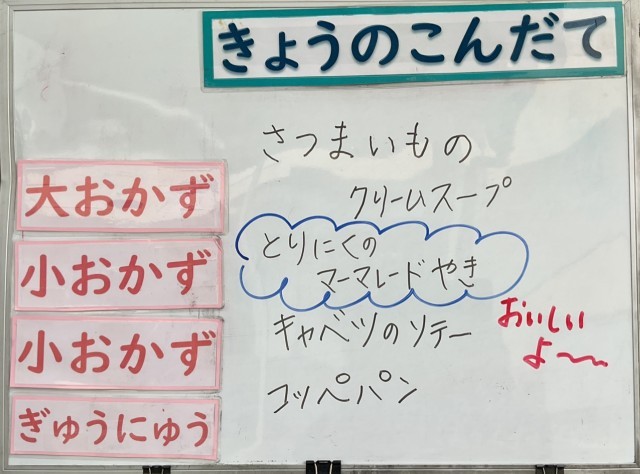 きょうのこんだて
大おかず
さつまいもの
クリームスープ
小おかず
とりにくの
マーマレードやき
小おかず
キャベツのソテー
おいしい
よ〜
ぎゅうにゅう
コッペパン